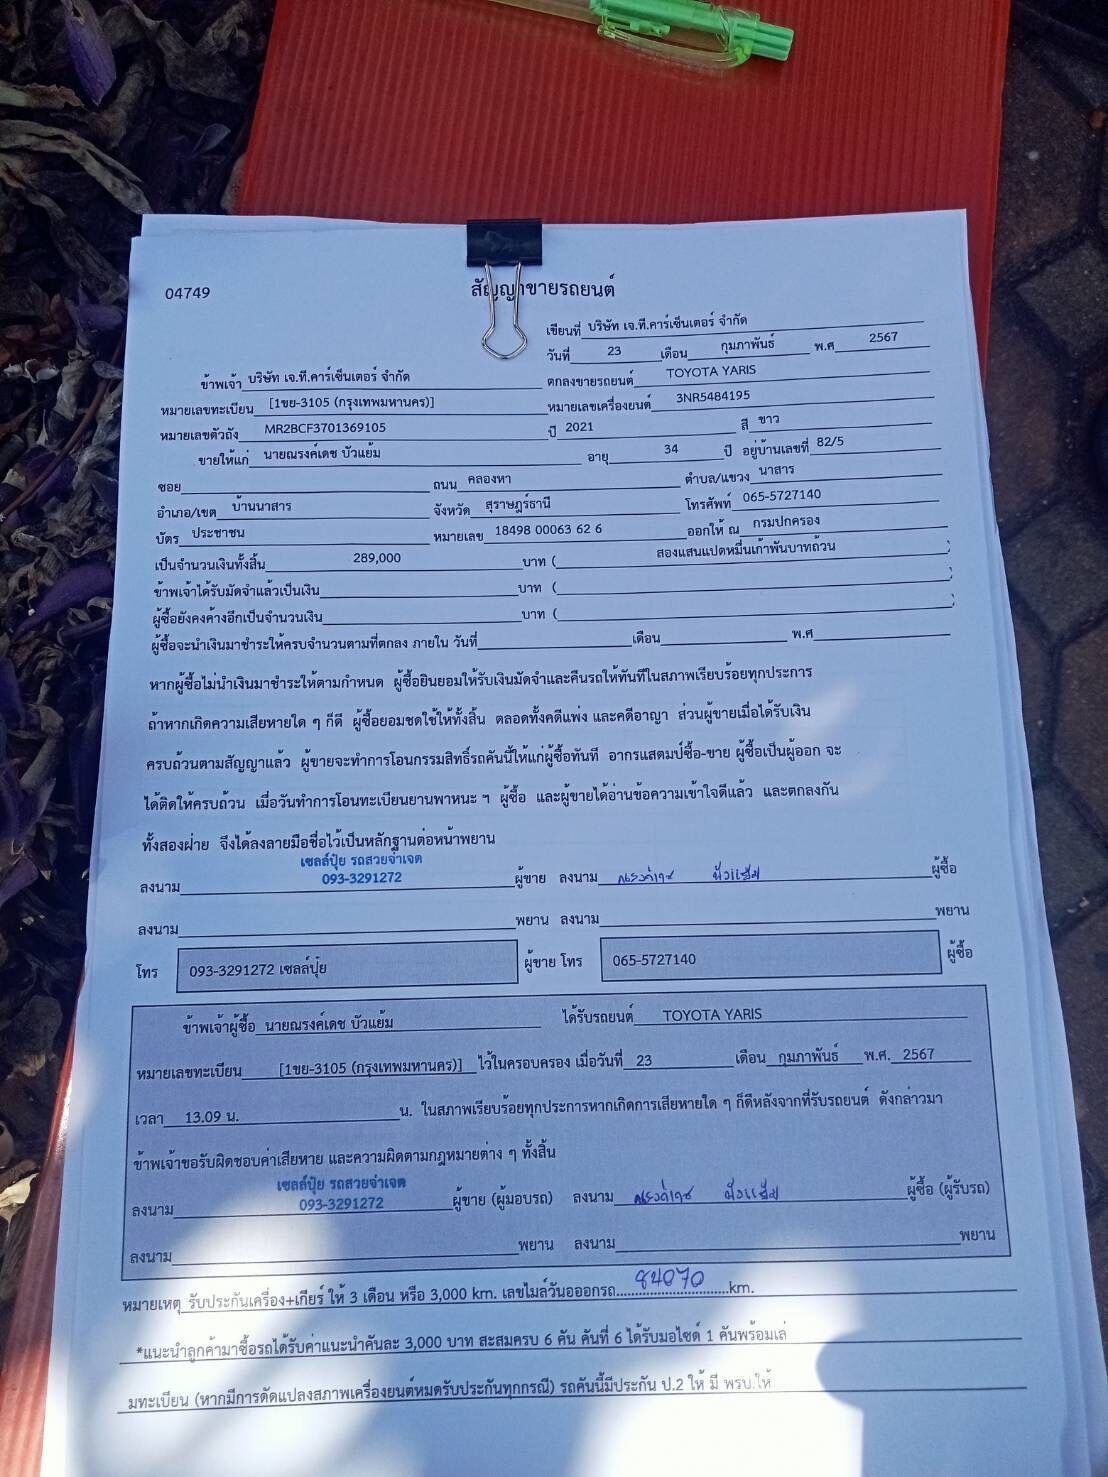 04749
สัญญาขายรถยนต์
เขียนที่ บริษัท เจ.ที.คาร์เซ็นเตอร์ จำกัด
วันที่ 23 เดือน กุมภาพันธ์ พ.ศ 2567
ข้าพเจ้า บริษัท เจ.ที.คาร์เซ็นเตอร์ จำกัด ตกลงขายรถยนต์ TOYOTA YARIS
หมายเลขทะเบียน [1ขย-3105 (กรุงเทพมหานคร)] หมายเลขเครื่องยนต์ 3NR5484195
หมายเลขตัวถัง MR2BCF3701369105 ปี 2021 สี ขาว
ขายให้แก่ นายณรงค์เดช บัวแย้ม อายุ 34 ปี อยู่บ้านเลขที่ 82/5
ซอย ถนน คลองหา ตำบล/แขวง นาสาร
อำเภอ/เขต บ้านนาสาร จังหวัด สุราษฎร์ธานี โทรศัพท์ 065-5727140
บัตร ประชาชน หมายเลข 18498 00063 62 6 ออกให้ ณ กรมปกครอง
เป็นจำนวนเงินทั้งสิ้น 289,000 บาท ( สองแสนแปดหมื่นเก้าพันบาทถ้วน )
ข้าพเจ้าได้รับมัดจำแล้วเป็นเงิน บาท ( )
ผู้ซื้อยังคงค้างอีกเป็นจำนวนเงิน บาท ( )
ผู้ซื้อจะนำเงินมาชำระให้ครบจำนวนตามที่ตกลง ภายใน วันที่ เดือน พ.ศ
หากผู้ซื้อไม่นำเงินมาชำระให้ตามกำหนด ผู้ซื้อยินยอมให้รับเงินมัดจำและคืนรถให้ทันทีในสภาพเรียบร้อยทุกประการ
ถ้าหากเกิดความเสียหายใด ๆ ก็ดี ผู้ซื้อยอมชดใช้ให้ทั้งสิ้น ตลอดทั้งคดีแพ่ง และคดีอาญา ส่วนผู้ขายเมื่อได้รับเงิน
ครบถ้วนตามสัญญาแล้ว ผู้ขายจะทำการโอนกรรมสิทธิ์รถคันนี้ให้แก่ผู้ซื้อทันที อากรแสตมป์ซื้อ-ขาย ผู้ซื้อเป็นผู้ออก จะ
ได้ติดให้ครบถ้วน เมื่อวันทำการโอนทะเบียนยานพาหนะ ฯ ผู้ซื้อ และผู้ขายได้อ่านข้อความเข้าใจดีแล้ว และตกลงกัน
ทั้งสองฝ่าย จึงได้ลงลายมือชื่อไว้เป็นหลักฐานต่อหน้าพยาน
เซลล์ปุ้ย รถสวยจำเจต
ลงนาม 093-3291272 ผู้ขาย ลงนาม ณรงค์เดช บัวแย้ม ผู้ซื้อ
ลงนาม พยาน ลงนาม พยาน
โทร 093-3291272 เซลล์ปุ้ย ผู้ขาย โทร 065-5727140 ผู้ซื้อ
ข้าพเจ้าผู้ซื้อ นายณรงค์เดช บัวแย้ม ได้รับรถยนต์ TOYOTA YARIS
หมายเลขทะเบียน [1ขย-3105 (กรุงเทพมหานคร)] ไว้ในครอบครอง เมื่อวันที่ 23 เดือน กุมภาพันธ์ พ.ศ. 2567
เวลา 13.09 น. น. ในสภาพเรียบร้อยทุกประการหากเกิดการเสียหายใด ๆ ก็ดีหลังจากที่รับรถยนต์ ดังกล่าวมา
ข้าพเจ้าขอรับผิดชอบค่าเสียหาย และความผิดตามกฎหมายต่าง ๆ ทั้งสิ้น
เซลล์ปุ้ย รถสวยจำเจต
ลงนาม 093-3291272 ผู้ขาย (ผู้มอบรถ) ลงนาม ณรงค์เดช บัวแย้ม ผู้ซื้อ (ผู้รับรถ)
ลงนาม พยาน ลงนาม พยาน
หมายเหตุ รับประกันเครื่อง+เกียร์ ให้ 3 เดือน หรือ 3,000 km. เลขไมล์วันออกรถ 84070 km.
*แนะนำลูกค้ามาซื้อรถได้รับค่าแนะนำคันละ 3,000 บาท สะสมครบ 6 คัน คันที่ 6 ได้รับมอไซด์ 1 คันพร้อมเล่
มทะเบียน (หากมีการดัดแปลงสภาพเครื่องยนต์หมดรับประกันทุกกรณี) รถคันนี้มีประกัน ป.2 ให้ มี พรบ.ให้